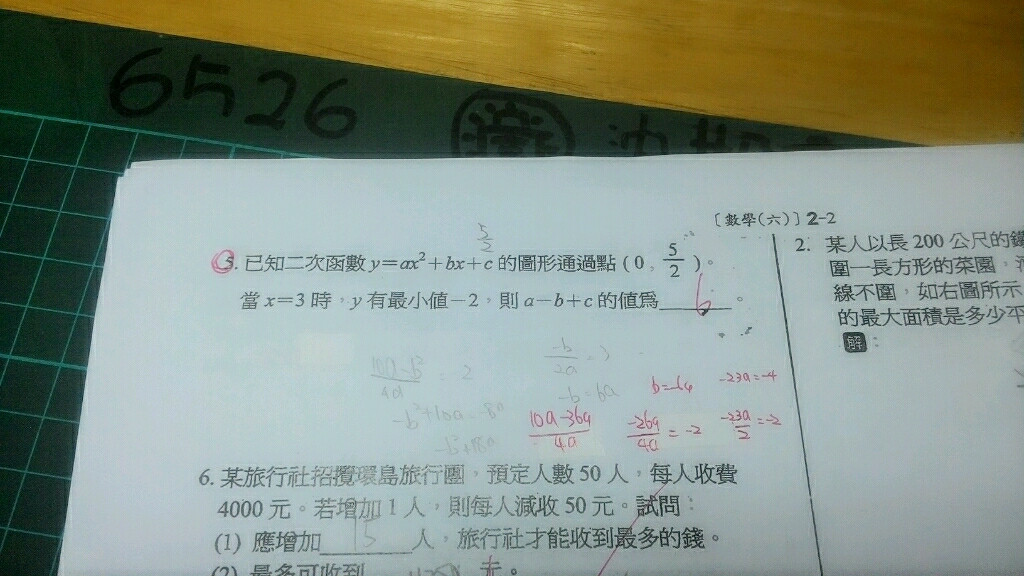 6526
[數學(六)] 2-2
5/2
5. 已知二次函數 y=ax²+bx+c 的圖形通過點 (0, 5/2)。
當 x=3 時,y 有最小值-2,則 a-b+c 的值為 6 。
b=-6a
-23a=-4
10a-36a/4a
-26a/4a = -2
-23a/2 = -2
6. 某旅行社招攬環島旅行團,預定人數 50 人,每人收費
4000 元。若增加 1 人,則每人減收 50 元。試問:
(1) 應增加 15 人,旅行社才能收到最多的錢。
(2) 最多可收到 元。
2. 某人以長 200 公尺的
圍一長方形的菜園,
線不圍,如右圖所示
的最大面積是多少平
解: